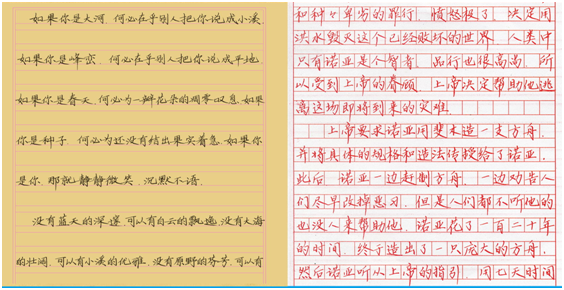 如果你是大河,何必在乎别人把你说成小溪.
如果你是峰峦,何必在乎别人把你说成平地.
如果你是春天,何必为一瓣花朵的凋零叹息.如果
你是种子,何必为还没有结出果实着急.如果你
是你,那就静静微笑,沉默不语.
没有蓝天的深邃,可以有白云的飘逸,没有大海
的壮阔,可以有小溪的优雅,没有原野的芬芳,可以有
和种々军歹的罪行,愤怒极了,决定用
洪水毁灭这个已经败坏的世界,人类中
只有诺亚是个智者,品行也很高尚,所
以受到上帝的眷顾,上帝决定帮助他逃
离这场即将到来的灾难
上帝要求诺亚用斐木造一支方舟,
并将具体的规格和造法传授给了诺亚,
此后,诺亚一边赶制方舟,一边劝告人
们尽早改掉恶习,但是人们都不听他的
也没人来帮助他,诺亚花了一百二十年
的时间,终于造出了一只庞大的方舟,
然后诺亚听从上帝的指引,用七天时间